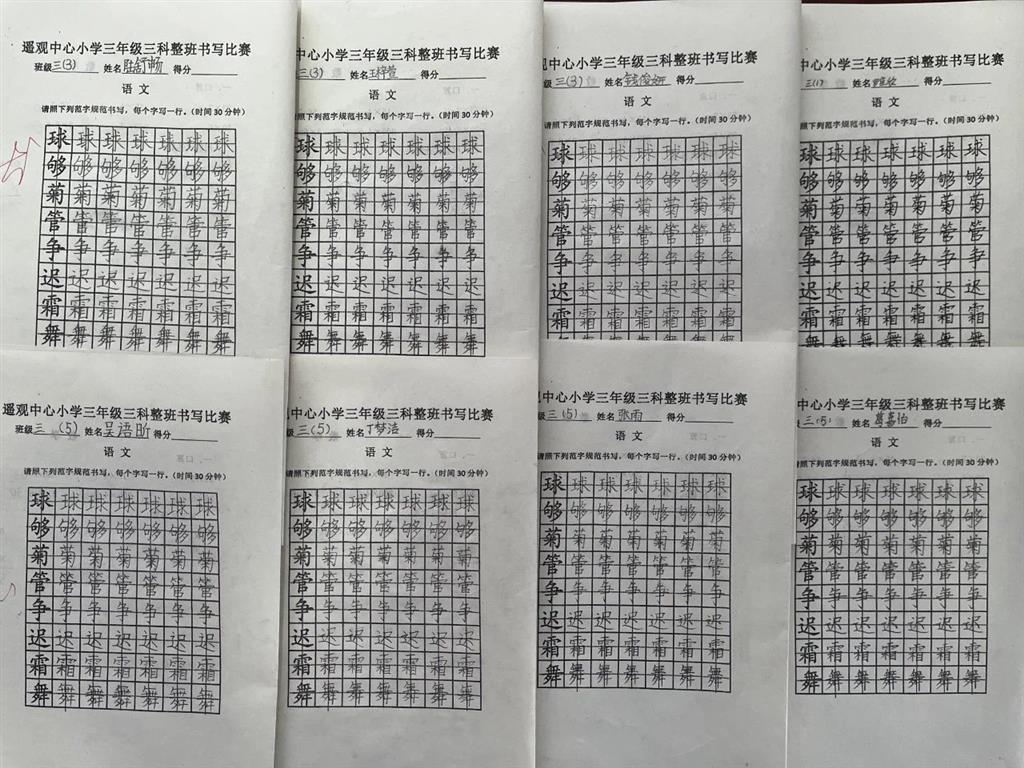 遥观中心小学三年级三科整班书写比赛
班级三(3) 姓名 舒畅 得分
语 文
请照下列范字规范书写，每个字写一行。(时间30分钟)
球球球球球球球
够够够够够够够
菊菊菊菊菊菊菊
管管管管管管管
争争争争争争争
迟迟迟迟迟迟迟
霜霜霜霜霜霜霜
舞舞舞舞舞舞舞
中心小学三年级三科整班书写比赛
三(3) 姓名王梓萱 得分
语 文
照下列范字规范书写，每个字写一行。(时间30分钟)
球球球球球球球
够够够够够够够
菊菊菊菊菊菊菊
管管管管管管管
争争争争争争争
迟迟迟迟迟迟迟
霜霜霜霜霜霜霜
舞舞舞舞舞舞舞
观中心小学三年级三科整班书写比赛
级三(3) 姓名钱俊妍 得分
语 文
请照下列范字规范书写，每个字写一行。(时间30分钟)
球球球球球球球
够够够够够够够
菊菊菊菊菊菊菊
管管管管管管管
争争争争争争争
迟迟迟迟迟迟迟
霜霜霜霜霜霜霜
舞舞舞舞舞舞舞
中心小学三年级三科整班书写比赛
三(1) 姓名 得分
语 文
照下列范字规范书写，每个字写一行。(时间30分钟)
球球球球球球球
够够够够够够够
菊菊菊菊菊菊菊
管管管管管管管
争争争争争争争
迟迟迟迟迟迟迟
霜霜霜霜霜霜霜
舞舞舞舞舞舞舞
遥观中心小学三年级三科整班书写比赛
班级三(5) 姓名吴语昕 得分
语 文
请照下列范字规范书写，每个字写一行。(时间30分钟)
球球球球球球球
够够够够够够够
菊菊菊菊菊菊菊
管管管管管管管
争争争争争争争
迟迟迟迟迟迟迟
霜霜霜霜霜霜霜
舞舞舞舞舞舞舞
观中心小学三年级三科整班书写比赛
级三(5) 姓名丁梦洁 得分
语 文
请照下列范字规范书写，每个字写一行。(时间30分钟)
球球球球球球球
够够够够够够够
菊菊菊菊菊菊菊
管管管管管管管
争争争争争争争
迟迟迟迟迟迟迟
霜霜霜霜霜霜霜
舞舞舞舞舞舞舞
观中心小学三年级三科整班书写比赛
级三(5) 姓名张雨 得分
语 文
请照下列范字规范书写，每个字写一行。(时间30分钟)
球球球球球球球
够够够够够够够
菊菊菊菊菊菊菊
管管管管管管管
争争争争争争争
迟迟迟迟迟迟迟
霜霜霜霜霜霜霜
舞舞舞舞舞舞舞
中心小学三年级三科整班书写比赛
级三(5) 姓名葛嘉怡 得分
语 文
照下列范字规范书写，每个字写一行。(时间30分钟)
球球球球球球球
够够够够够够够
菊菊菊菊菊菊菊
管管管管管管管
争争争争争争争
迟迟迟迟迟迟迟
霜霜霜霜霜霜霜
舞舞舞舞舞舞舞